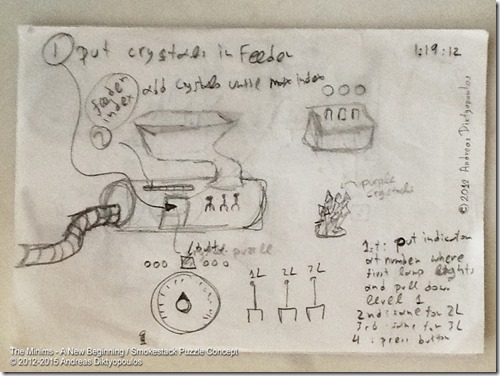 1 put crystals in Feeder
1:19:12
add crystals until max index
feeder
index
2
purple
crystals
puzzle
1L 2L 3L
1st: put indicator
at number where
first lamp lights
and pull down
level 1
2nd: same for 2L
3rd: same for 3L
4: press button
© 2012 Andreas Diktyopoulos
The Minims - A New Beginning / Smokestack Puzzle Concept
© 2012-2015 Andreas Diktyopoulos